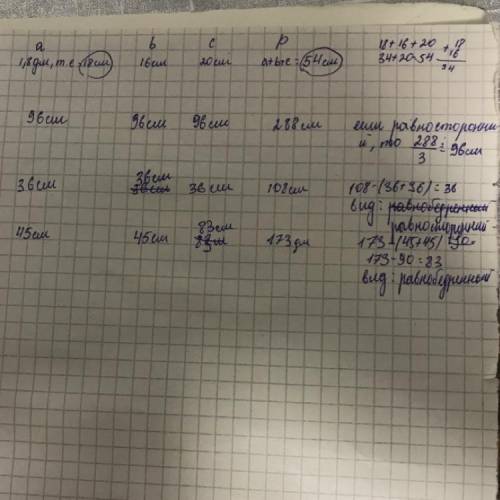 a b c p 18+16+20 +18
1,8 дм, т.е 18см 16см 20см a+b+c=54см 34+20=54 16
34
96см 96см 96см 288см если равносторонни
й, то 288/3=96см
36см 36см 36см 108см 108-(36+36)=36
вид: равнобедренный
равносторонний
45см 45см 83см 173дм 173-(45+45)
173-90=83
вид: равнобедренный